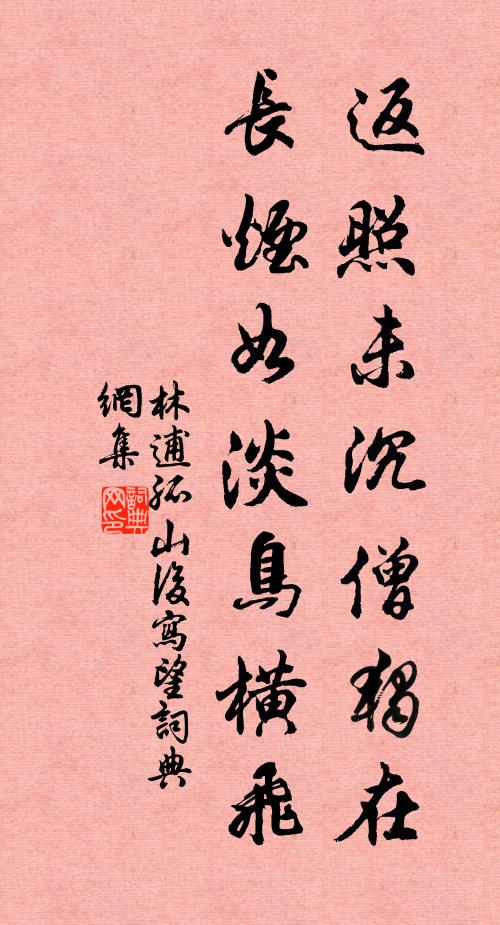 返照未沉僧獨在
長煙如淡鳥橫飛
林逋孤山後寫望詞典
網集
詞典網印